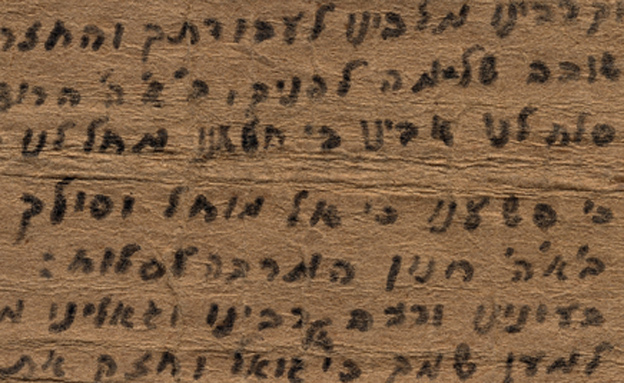 וקרבינו מלכינו לעבודתך והחזר
שלימה לפניך. ב'א'ה' הרוצ
סלח לנו אבינו כי חטאנו מחל לנו
כי פשענו כי אל מוחל וסולח
ב'א'ה' חנון המרבה לסלוח:
ריבינו וגאלינו מ
למען שמך כי גואל וחזק את